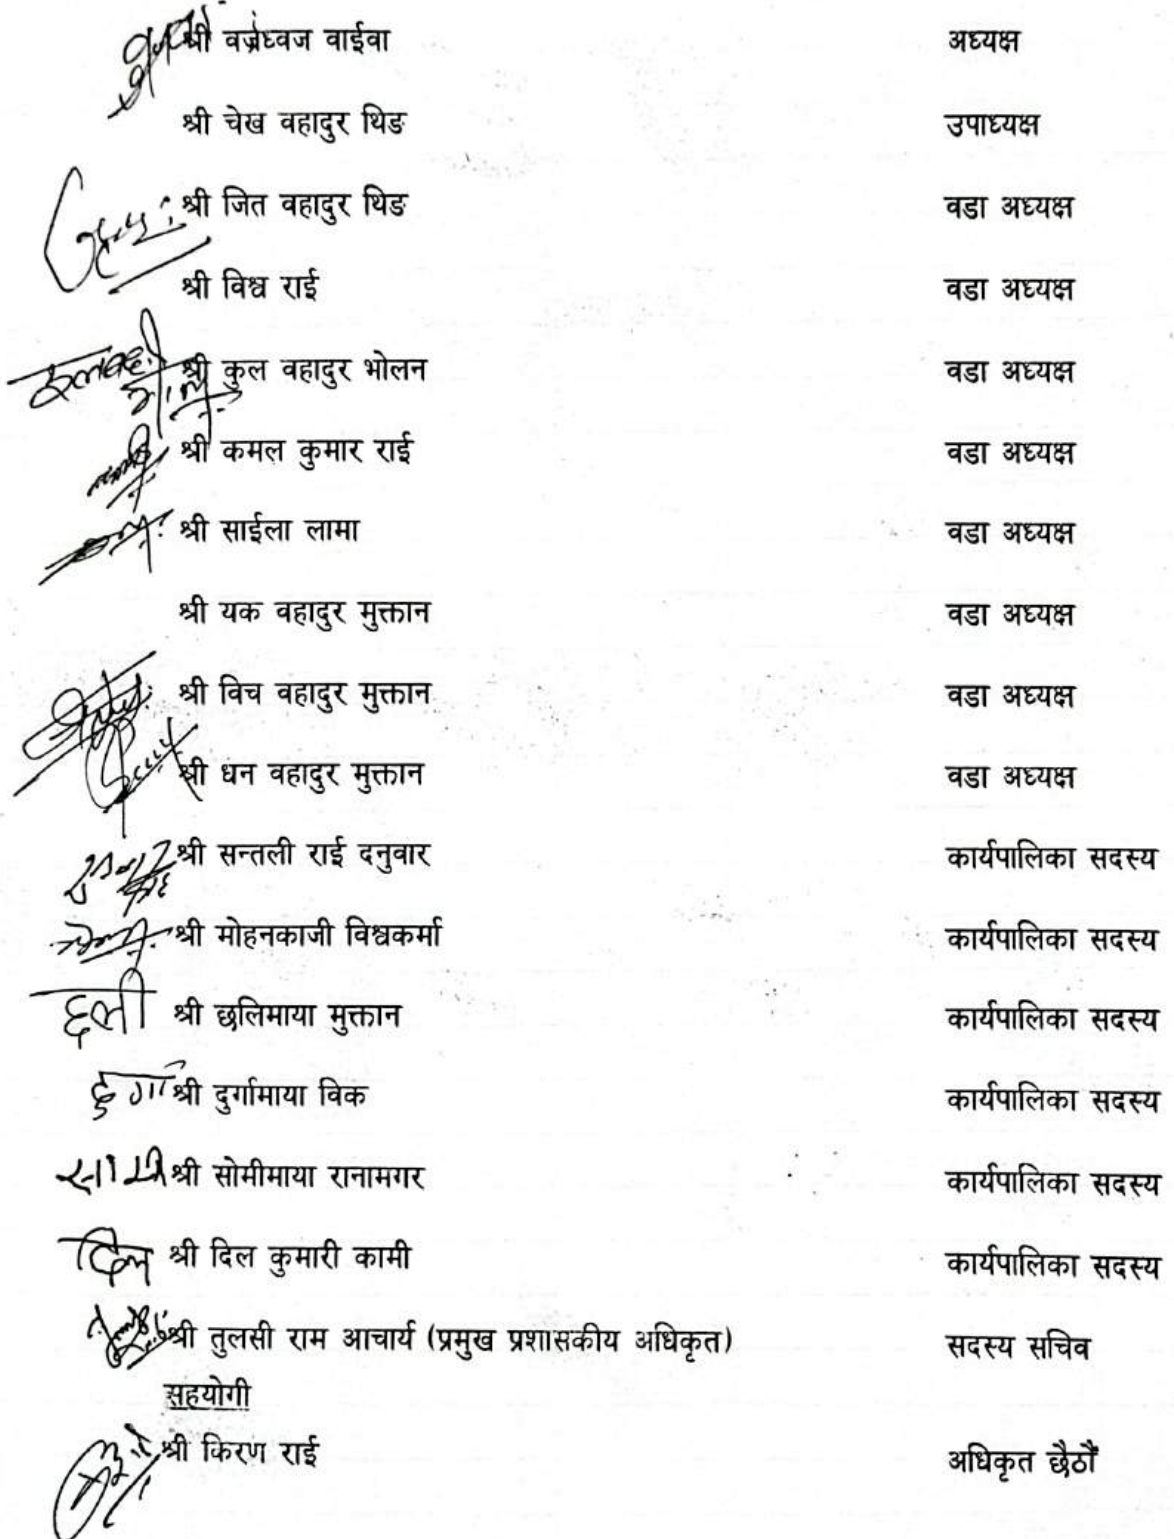 श्री वज्रध्वज वाईवा अध्यक्ष
श्री चेख वहादुर थिङ उपाध्यक्ष
श्री जित वहादुर थिङ वडा अध्यक्ष
श्री विश्व राई वडा अध्यक्ष
श्री कुल वहादुर भोलन वडा अध्यक्ष
श्री कमल कुमार राई वडा अध्यक्ष
श्री साईला लामा वडा अध्यक्ष
श्री यक वहादुर मुक्तान वडा अध्यक्ष
श्री विच वहादुर मुक्तान वडा अध्यक्ष
श्री धन वहादुर मुक्तान वडा अध्यक्ष
श्री सन्तली राई दनुवार कार्यपालिका सदस्य
श्री मोहनकाजी विश्वकर्मा कार्यपालिका सदस्य
छली श्री छलिमाया मुक्तान कार्यपालिका सदस्य
दुर्गा श्री दुर्गामाया विक कार्यपालिका सदस्य
श्री सोमीमाया रानामगर कार्यपालिका सदस्य
दिल श्री दिल कुमारी कामी कार्यपालिका सदस्य
श्री तुलसी राम आचार्य (प्रमुख प्रशासकीय अधिकृत) सदस्य सचिव
सहयोगी
श्री किरण राई अधिकृत छैठौं